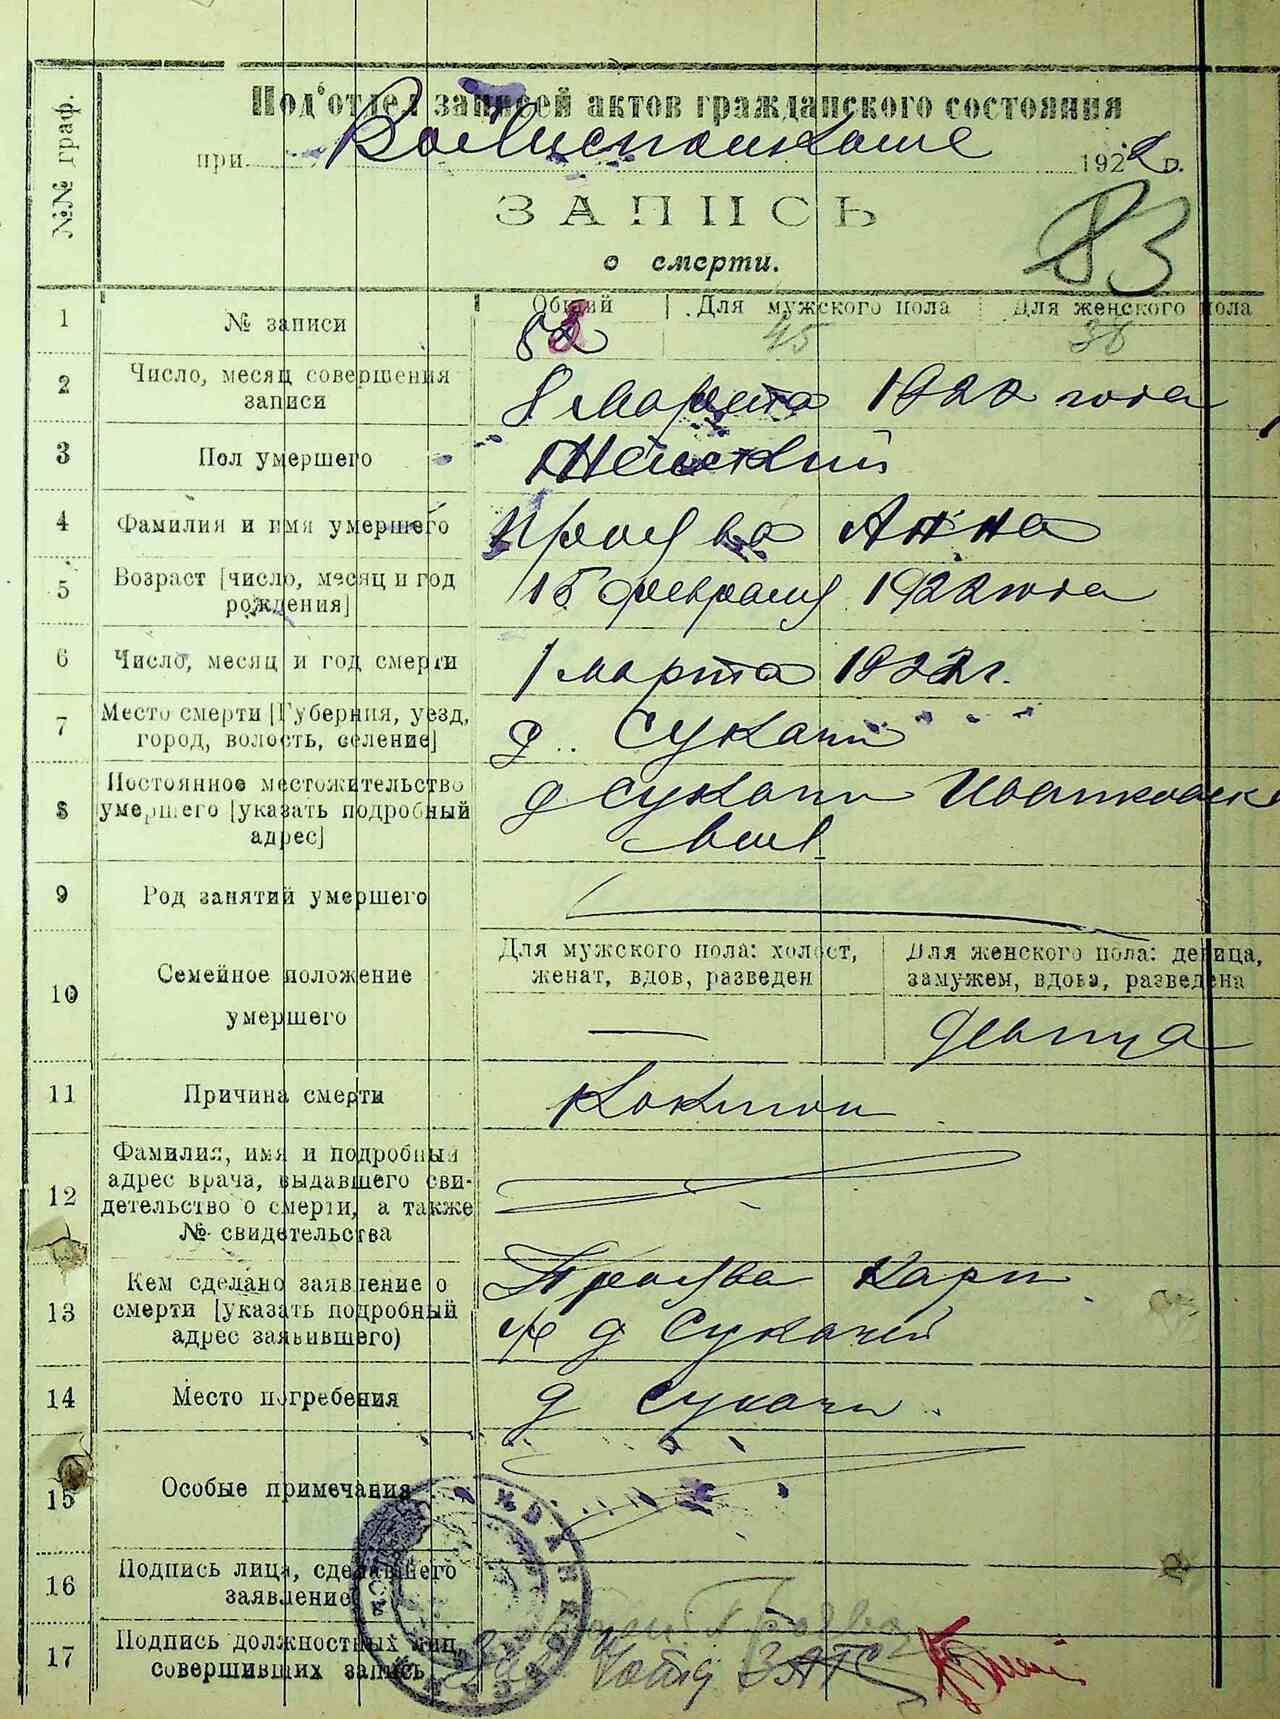 №№ граф.
Под'отдел записей актов гражданского состояния
при Волисполкоме 1922 г.
ЗАПИСЬ
о смерти.
83
Общий Для мужского пола Для женского пола
1 № записи 45 38
2 Число, месяц совершения
записи
8 Марта 1922 года
3 Пол умершего Женский
4 Фамилия и имя умершего Анна
5 Возраст [число, месяц и год
рождения]
15 февраля 1922 года
6 Число, месяц и год смерти 1 марта 1922 г.
7 Место смерти [Губерния, уезд,
город, волость, селение]
д. Сукачи
8 Постоянное местожительство
умершего [указать подробный
адрес]
д Сукачи Иванковск
вол
9 Род занятий умершего
10 Семейное положение
умершего
Для мужского пола: холост,
женат, вдов, разведен
Для женского пола: девица,
замужем, вдова, разведена
—
девица
11 Причина смерти Коклюш
12 Фамилия, имя и подробный
адрес врача, выдавшего сви-
детельство о смерти, а также
№ свидетельства
13 Кем сделано заявление о
смерти [указать подробный
адрес заявившего)
Карп
д Сукачей
14 Место погребения д Сукачи
15 Особые примечания
16 Подпись лица, сделавшего
заявление
17 Подпись должностных лиц,
совершивших запись
ЗАГС